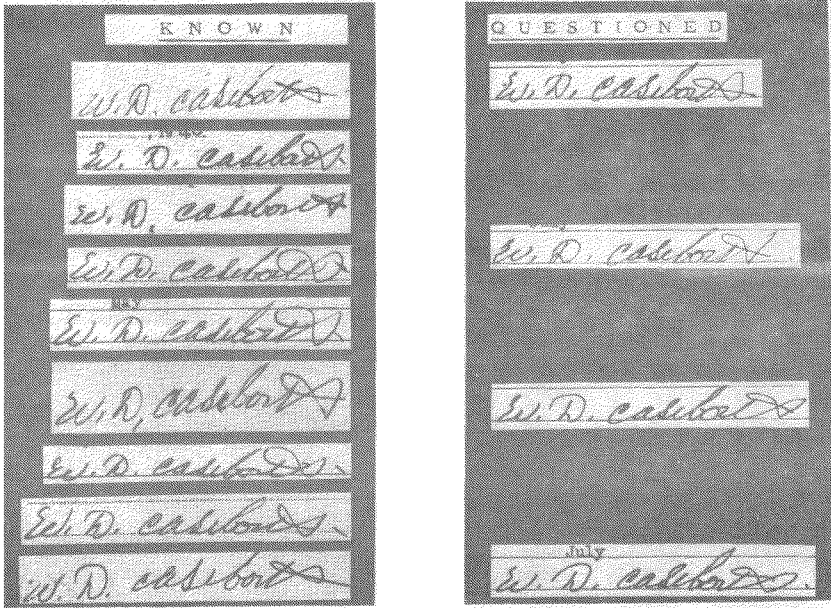 KNOWN
W. D. Casebolts
, 1948.
W. D. Casebolts
W. D. Casebolts
W. D. Casebolts
May
W. D. Casebolts
W. D. Casebolts
W. D. Casebolts.
W. D. Casebolts.
W. D. Casebolts
QUESTIONED
W. D. Casebolts
W. D. Casebolts
W. D. Casebolts
July
W. D. Casebolts.